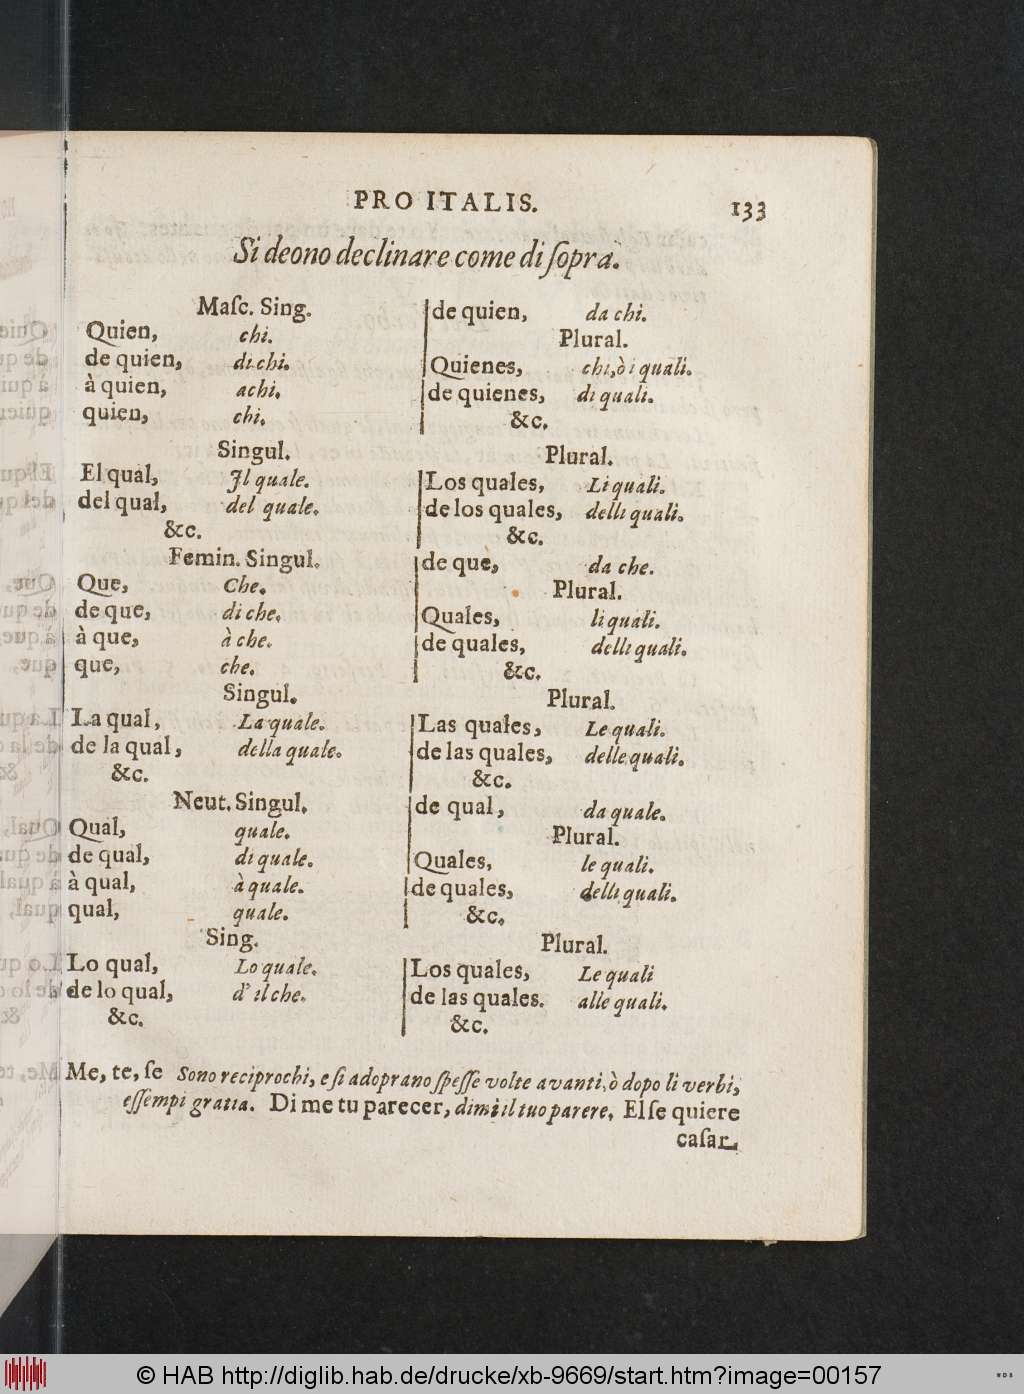 PRO ITALIS. 133
Si deono declinare come di ſopra.
Maſc. Sing.
Quien, chi.
de quien, di chi.
à quien, achi.
quien, chi.
de quien, da chi.
Plural.
Quienes, chi, ò i quali.
de quienes, di quali.
&c.
Singul.
El qual, Il quale.
del qual, del quale.
&c.
Plural.
Los quales, Li quali.
de los quales, delli quali.
&c.
Femin. Singul.
Que, Che.
de que, di che.
à que, à che.
que, che.
de que, da che.
Plural.
Quales, li quali.
de quales, delli quali.
&c.
Singul.
La qual, La quale.
de la qual, della quale.
&c.
Plural.
Las quales, Le quali.
de las quales, delle quali.
&c.
Neut. Singul.
Qual, quale.
de qual, di quale.
à qual, à quale.
qual, quale.
de qual, da quale.
Plural.
Quales, le quali.
de quales, delli quali.
&c.
Sing.
Lo qual, Lo quale.
de lo qual, d' il che.
&c.
Plural.
Los quales, Le quali
de las quales. alle quali.
&c.
Me, te, ſe Sono reciprochi, e ſi adoprano ſpeſſe volte avanti, ò dopo li verbi,
eſſempi gratia. Di me tu parecer, dimi il tuo parere, El ſe quiere
caſar,
© HAB http://diglib.hab.de/drucke/xb-9669/start.htm?image=00157